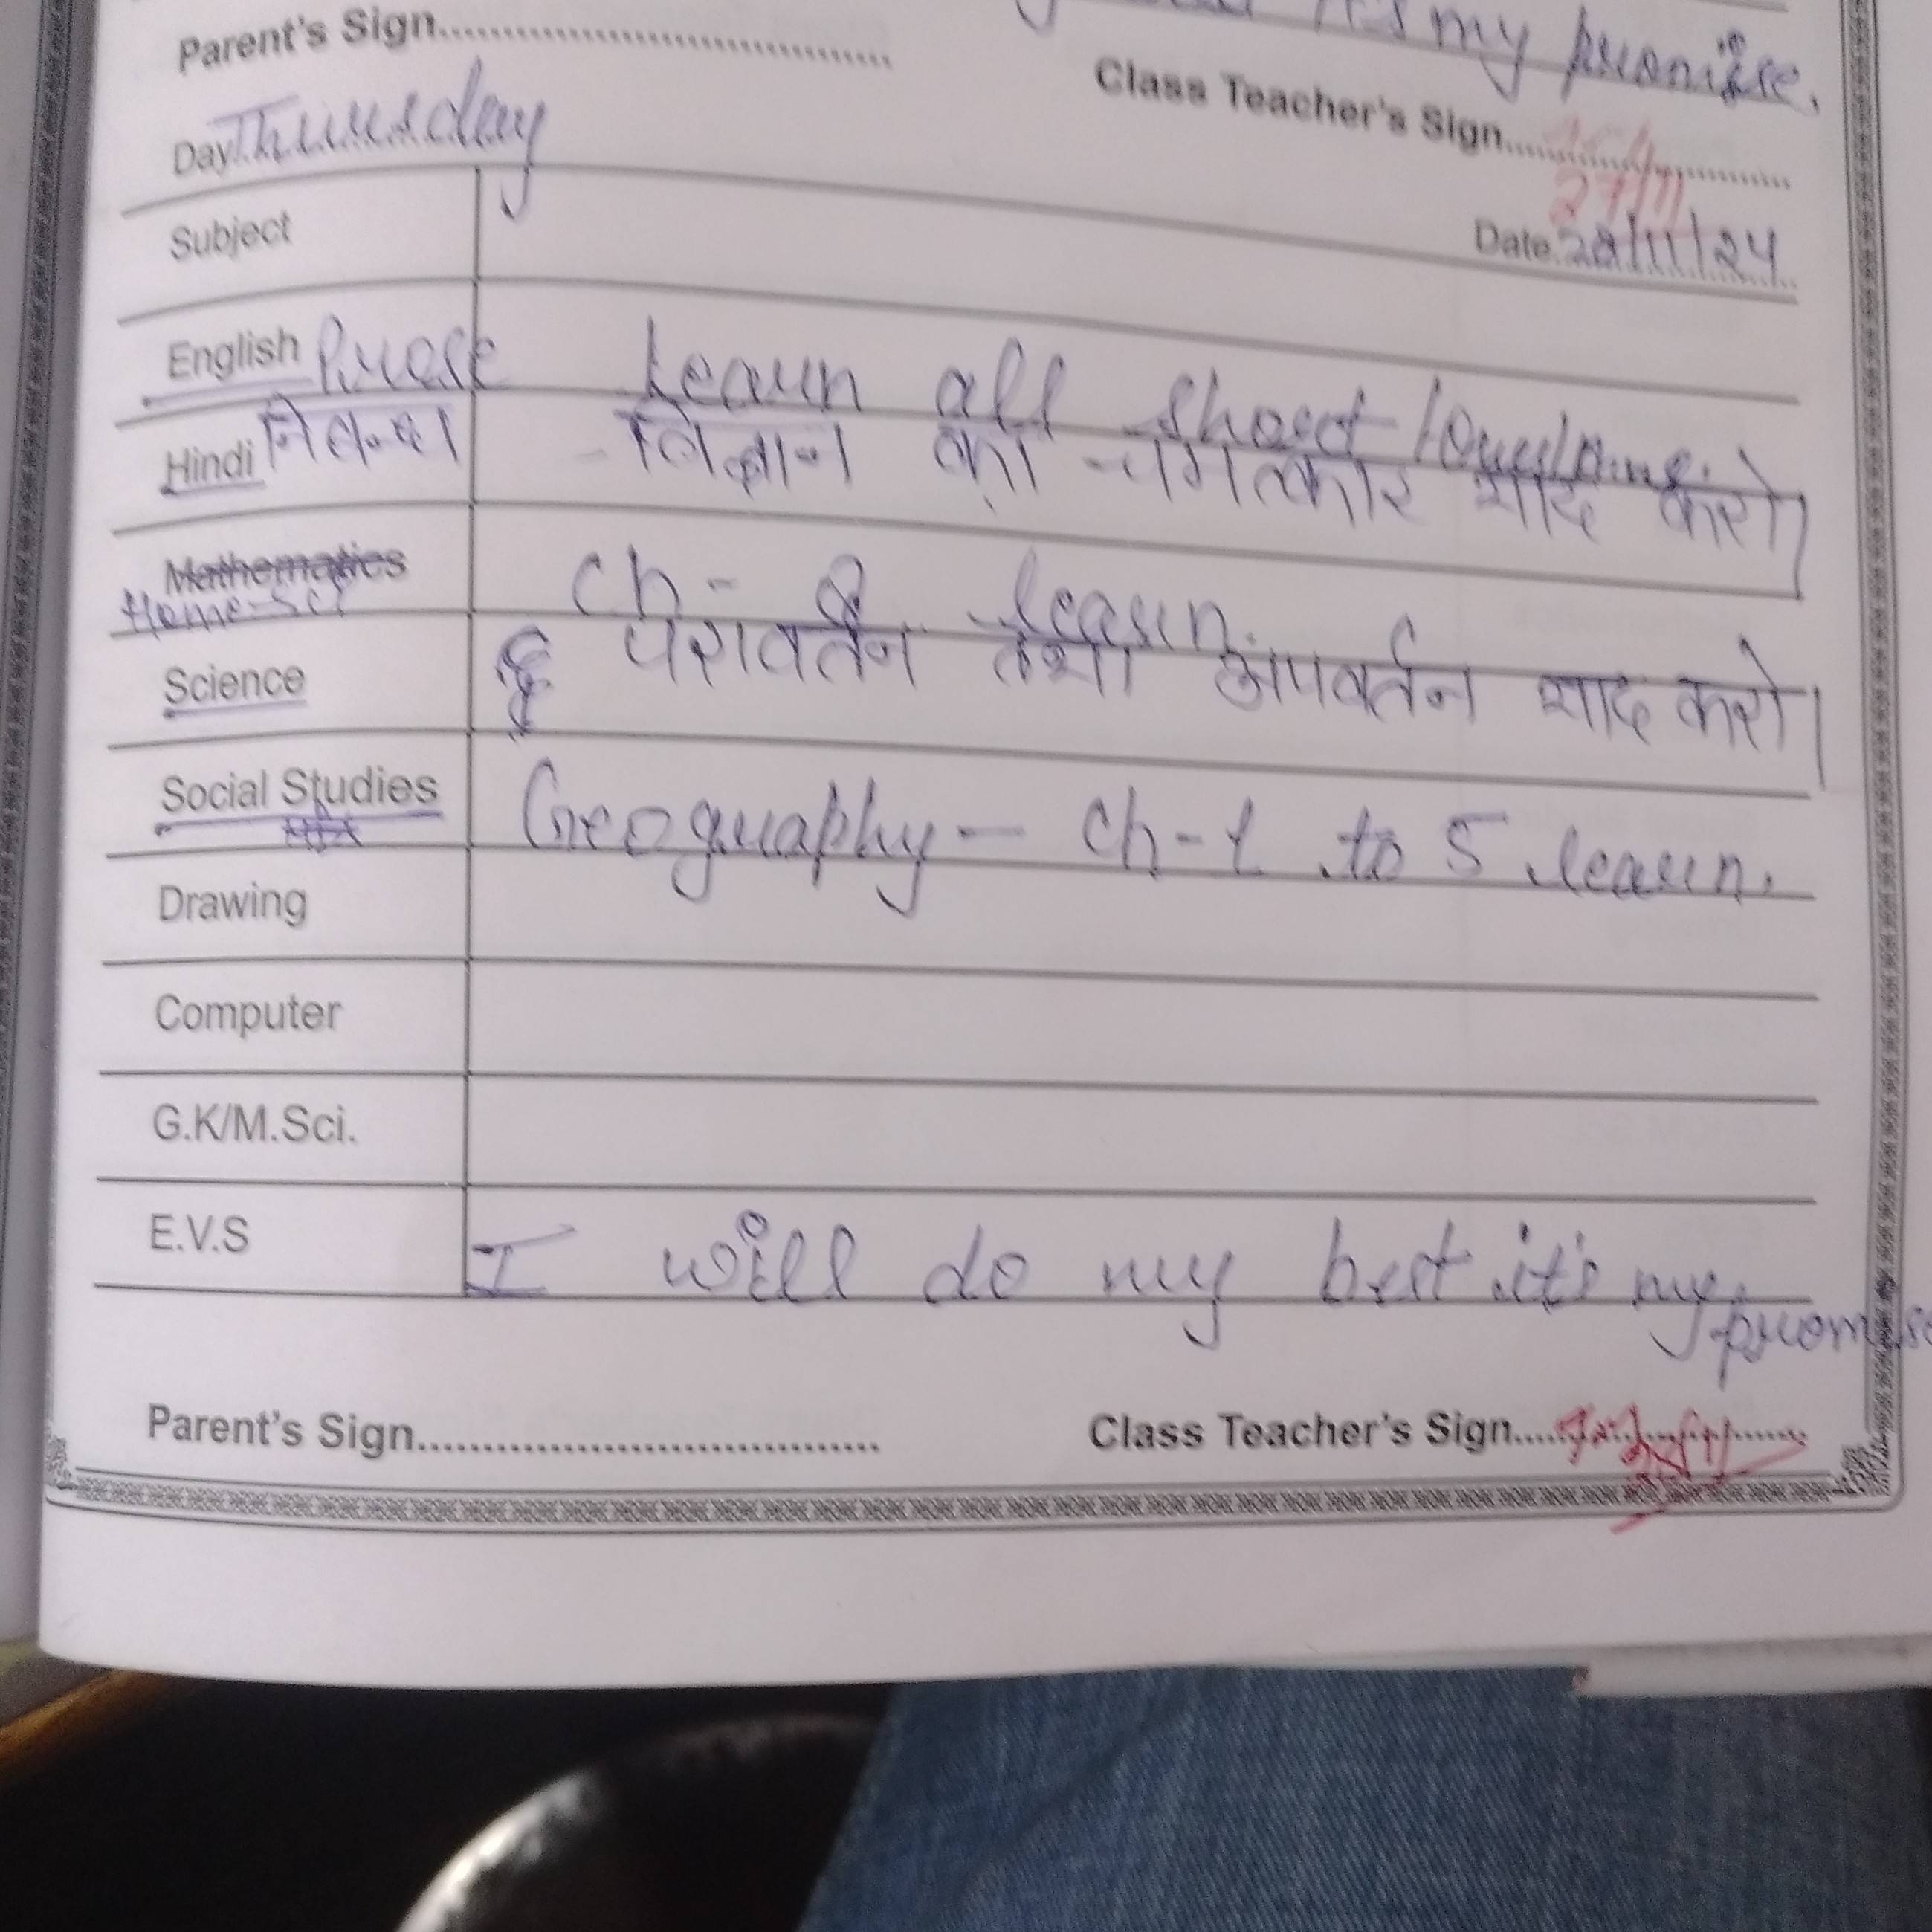 it's my promise.
Parent's Sign
Class Teacher's Sign
27/11
Day Thursday
Date 28/11/24
Subject
English Prose Learn all short / long
Hindi निबन्ध विज्ञान का चमत्कार याद करो।
Mathematics
Home-Sci Ch- 8 learn.
Science परावर्तन तथा अपवर्तन याद करो।
Social Studies Geography - Ch-1 to 5 learn.
Drawing
Computer
G.K/M.Sci.
E.V.S I will do my best it's my
promise
Parent's Sign
Class Teacher's Sign